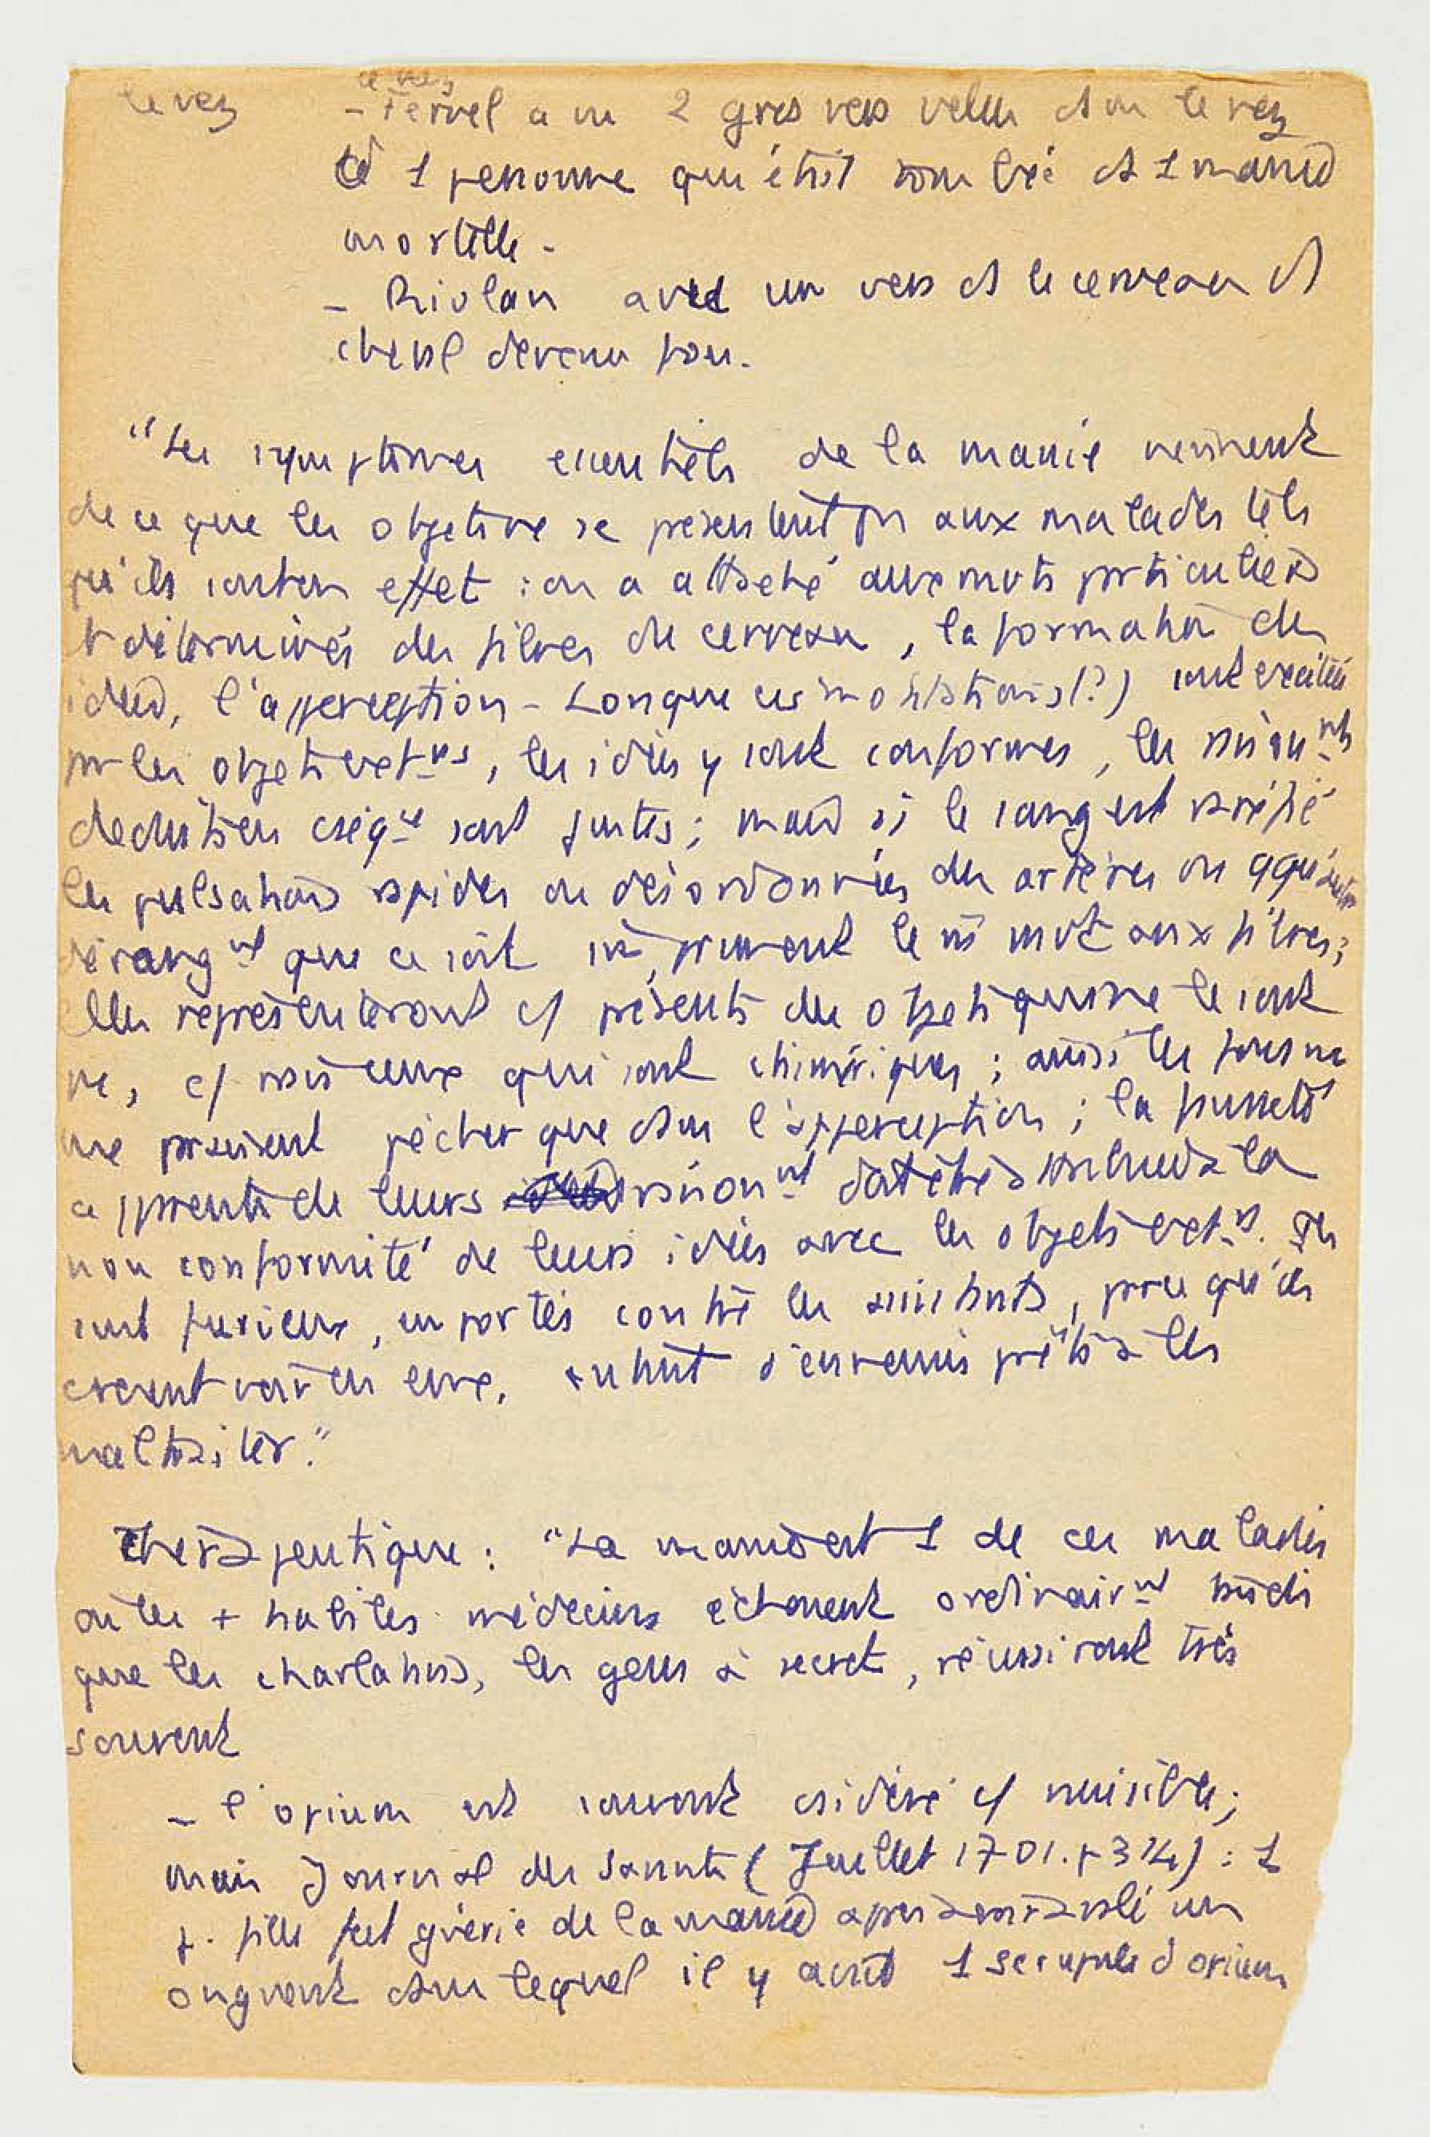 le nez
le nez
- Fernel a vu 2 gros vers velus ds le nez
d 1 personne qui était tombée ds 1 manie
mortelle -
- Riolan avec un vers ds le cerveau d
cheval devenu fou.
"Les symptômes essentiels de la manie viennent
de ce que les objets ne se présentent pas aux malades tels
qu'ils sont en effet : on a attaché aux mots particuliers
et déterminés des fibres du cerveau, la formation des
idées, l'apperception - Lorsque ces (?) sont excités
par les objets extrs, les idées y sont conformes, les raisonnts
déduits en cséqce sont justes ; mais si le sang est raréfié
les pulsations rapides ou désordonnées des artères ou qque autre
dérangnt que ce soit impriment le m mvt aux fibres ;
elles représenteront c/ présents des objets qui ne le sont
pas, c/ vrais ceux qui sont chimériques ; aussi les fous ne
me paraissent pécher que ds l'apperception ; la fausseté
apparente de leurs raisonnt doit être attribuée à la
non conformité de leurs idées avec les objets extrs. Ils
sont furieux, emportés contre les assistants, parce qu'ils
croient voir en eux, autant d'ennemis prêts à les
maltraiter."
Thérapeutique : "La manie est 1 de ces maladies
où les + habiles médecins échouent ordinairnt tandis
que les charlatans, les gens à secrets, réussiront très
souvent
- l'opium est souvent csidéré c/ nuisible ;
mais Journal des Savants (Juillet 1701. p 314) : 1
j. fille fut guérie de la manie après avoir avalé un
onguent ds lequel il y avait 1 scrupule d'opium